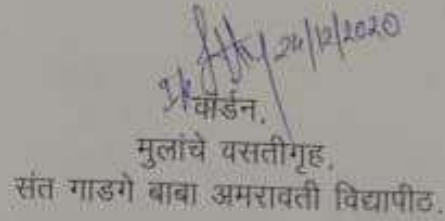 24/12/2020
वॉर्डन,
मुलांचे वसतीगृह,
संत गाडगे बाबा अमरावती विद्यापीठ